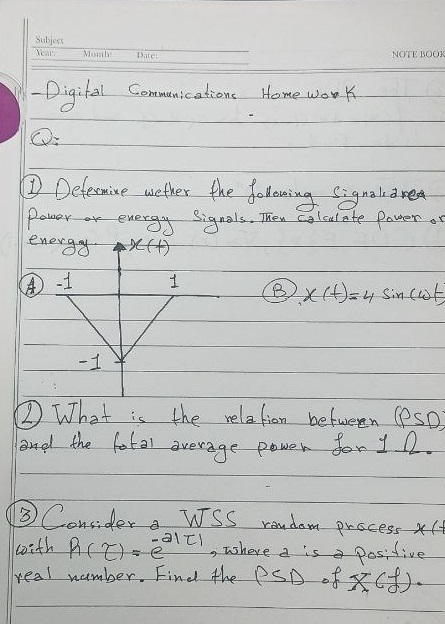 Subject
Year: Month: Date:
NOTE BOOK
- Digital Communications Home work
Q:
① Determine wether the following Signals area
power or energy Signals. Then calculate power or
energy.
x(t)
Ⓐ -1 1
Ⓑ x(t)=4 sin(ωt
-1
② What is the relation between (PSD)
and the total average power for 1 Ω.
③ Consider a WSS random process x(t
with R(τ) = e^-a|τ|, where a is a positive
real number. Find the PSD of X(f).